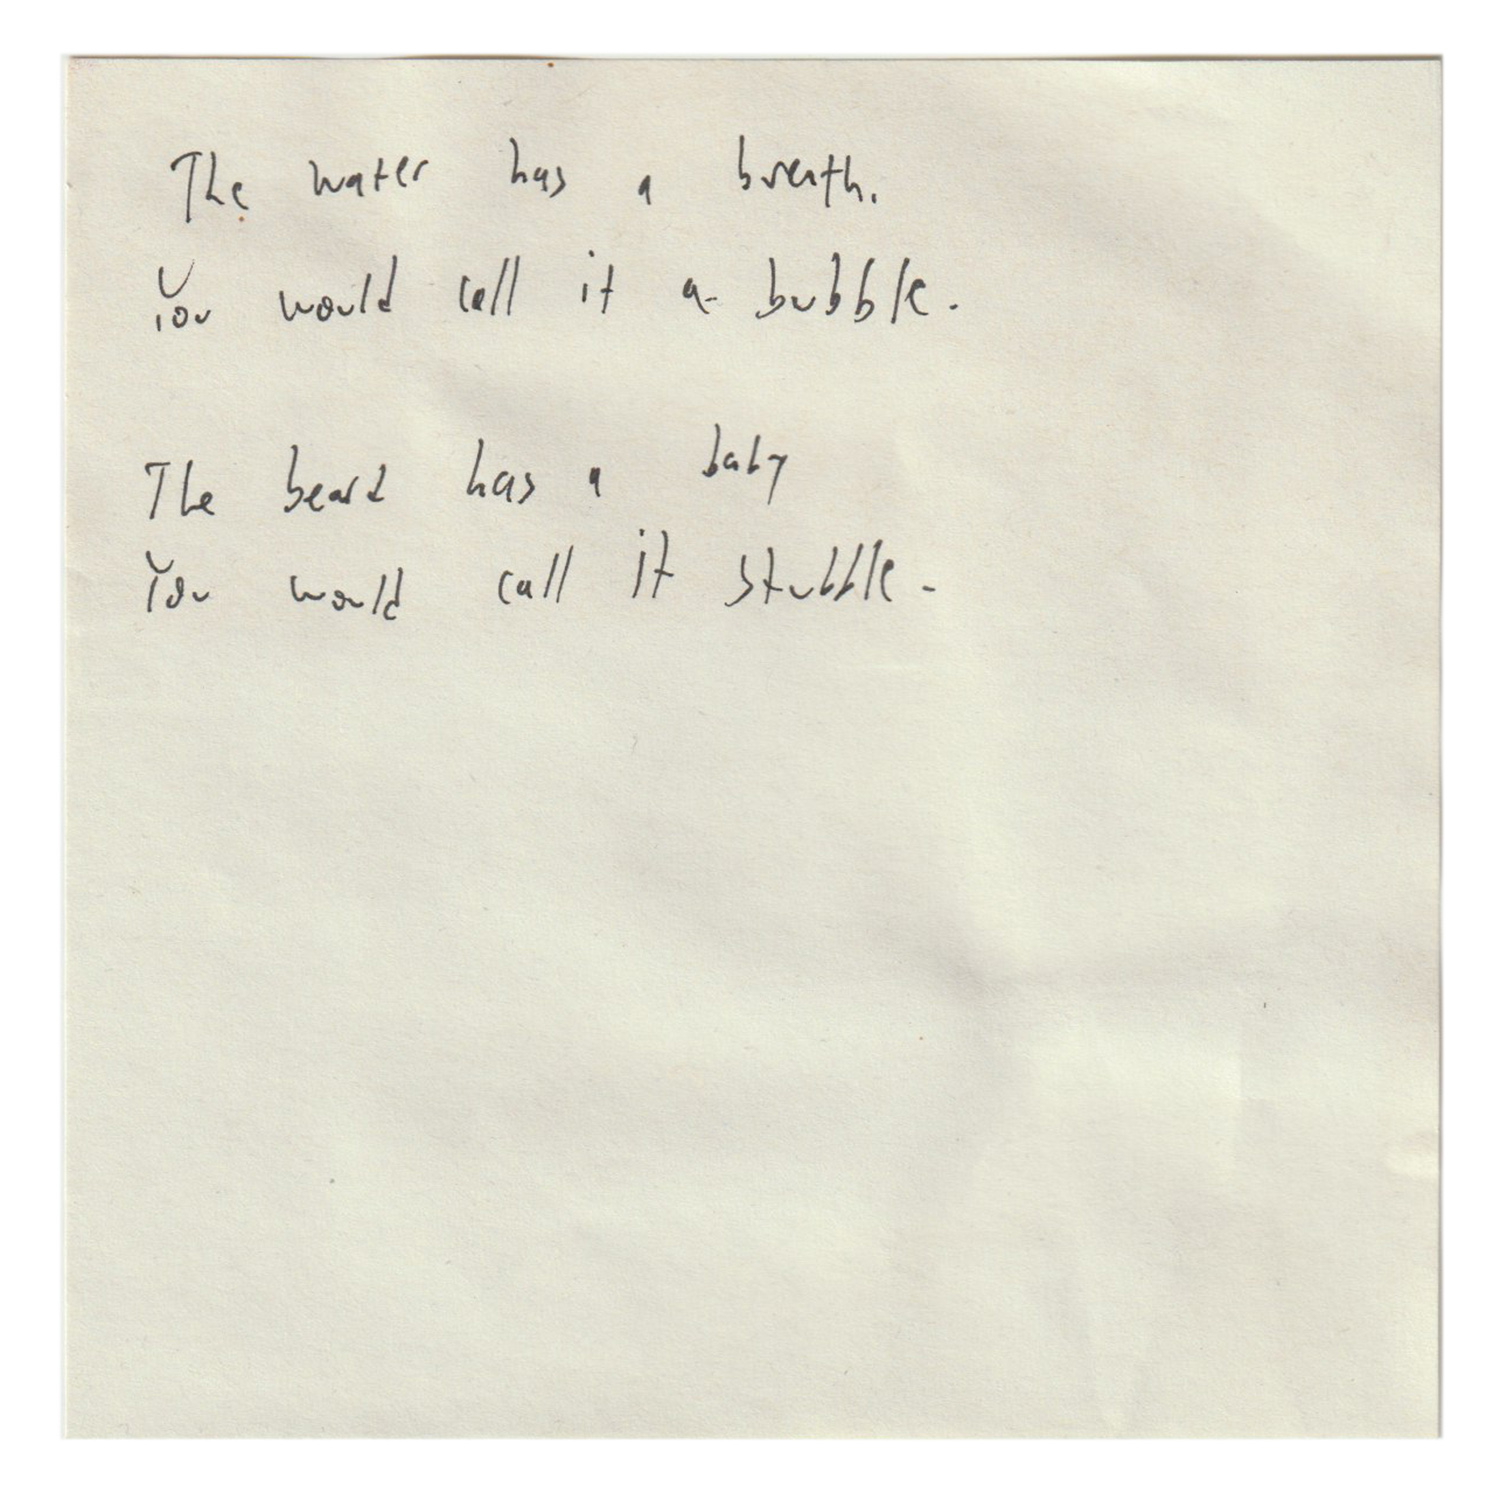 The water has a breath.
You would call it a bubble.
The beard has a baby
You would call it stubble.